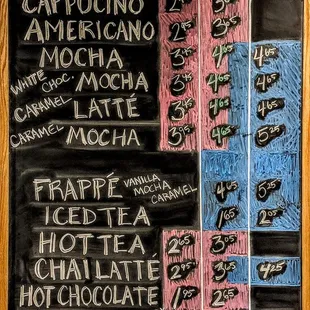 CAPPUCINO
AMERICANO 2.95 3.45
MOCHA 3.45 4.65 4.65
WHITE CHOC. MOCHA 3.45 4.65 4.65
CARAMEL LATTÉ 3.45 4.65 4.65
CARAMEL MOCHA 3.95 4.65 5.25
FRAPPÉ VANILLA MOCHA CARAMEL 4.65 5.25
ICED TEA 1.65 2.05
HOT TEA 2.65 3.05
CHAI LATTÉ 2.95 3.65 4.25
HOT CHOCOLATE 1.95 2.65